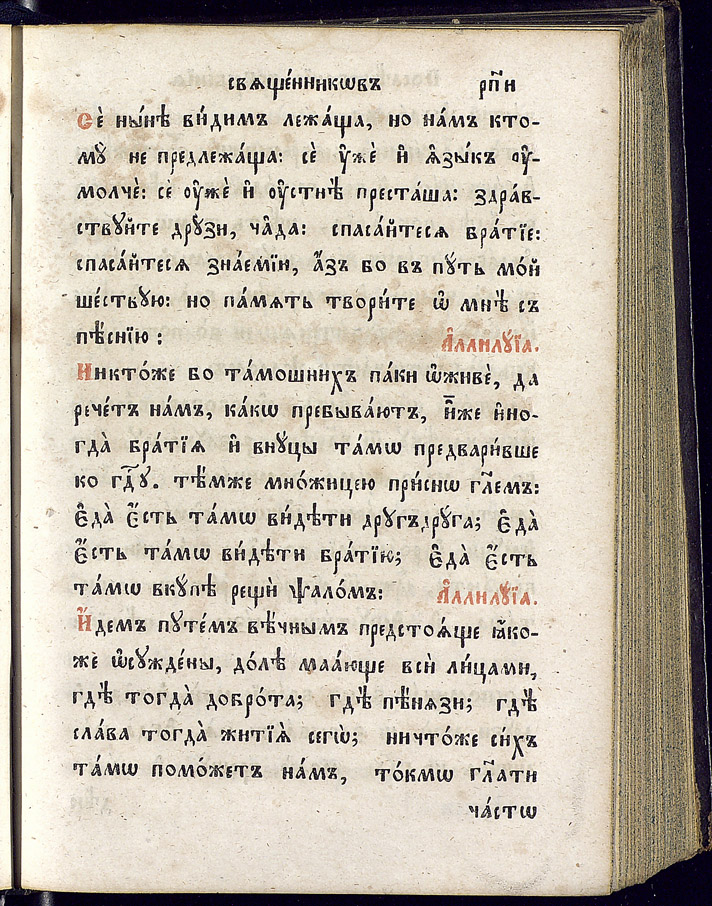 свѧще́нникѡвъ рп҃и
Сѐ ны́нѣ ви́димъ лежа́ща, но на́мъ кто-
мꙋ̀ не предлежа́ща: сѐ ᲂу҆жѐ и҆ ѧ҆зы́къ ᲂу҆-
молчѐ: сѐ ᲂу҆жѐ и҆ ᲂу҆стнѣ̀ преста́ша: здра́в-
ствꙋйте дрꙋ́зи, ча̑да: спаса́йтесѧ бра́тїе:
спаса́йтесѧ зна́емїи, а҆́зъ бо въ пꙋ́ть мо́й
ше́ствꙋю: но па́мѧть твори́те ѡ҆ мнѣ̀ съ
пѣ́снїю: А҆ллилꙋ́їа.
Никто́же бо та́мошнихъ па́ки ѡ҆живѐ, да
рече́тъ на́мъ, ка́кѡ пребыва́ютъ, и҆̀же и҆но-
гда̀ бра́тїѧ и҆ внꙋ́цы та́мѡ предвари́вше
ко гдⷭ҇ꙋ. тѣ́мже мно́жицею при́снѡ гл҃емъ:
Є҆да̀ є҆́сть та́мѡ ви́дѣти дрꙋгъдрꙋ́га; Є҆да̀
є҆́сть та́мѡ ви́дѣти бра́тїю; Є҆да̀ є҆́сть
та́мѡ вкꙋ́пѣ рещѝ ѱало́мъ: А҆ллилꙋ́їа.
И҆́демъ пꙋте́мъ вѣ́чнымъ предстоѧ́ще ꙗ҆́ко-
же ѡ҆сꙋжде́ны, до́лѣ маа́юще всѝ ли́цами,
гдѣ̀ тогда̀ добро́та; гдѣ̀ пѣ́нѧзи; гдѣ̀
сла́ва тогда̀ житїѧ̀ сегѡ̀; ничто́же си́хъ
та́мѡ помо́жетъ на́мъ, то́кмѡ гл҃ати
ча́стѡ